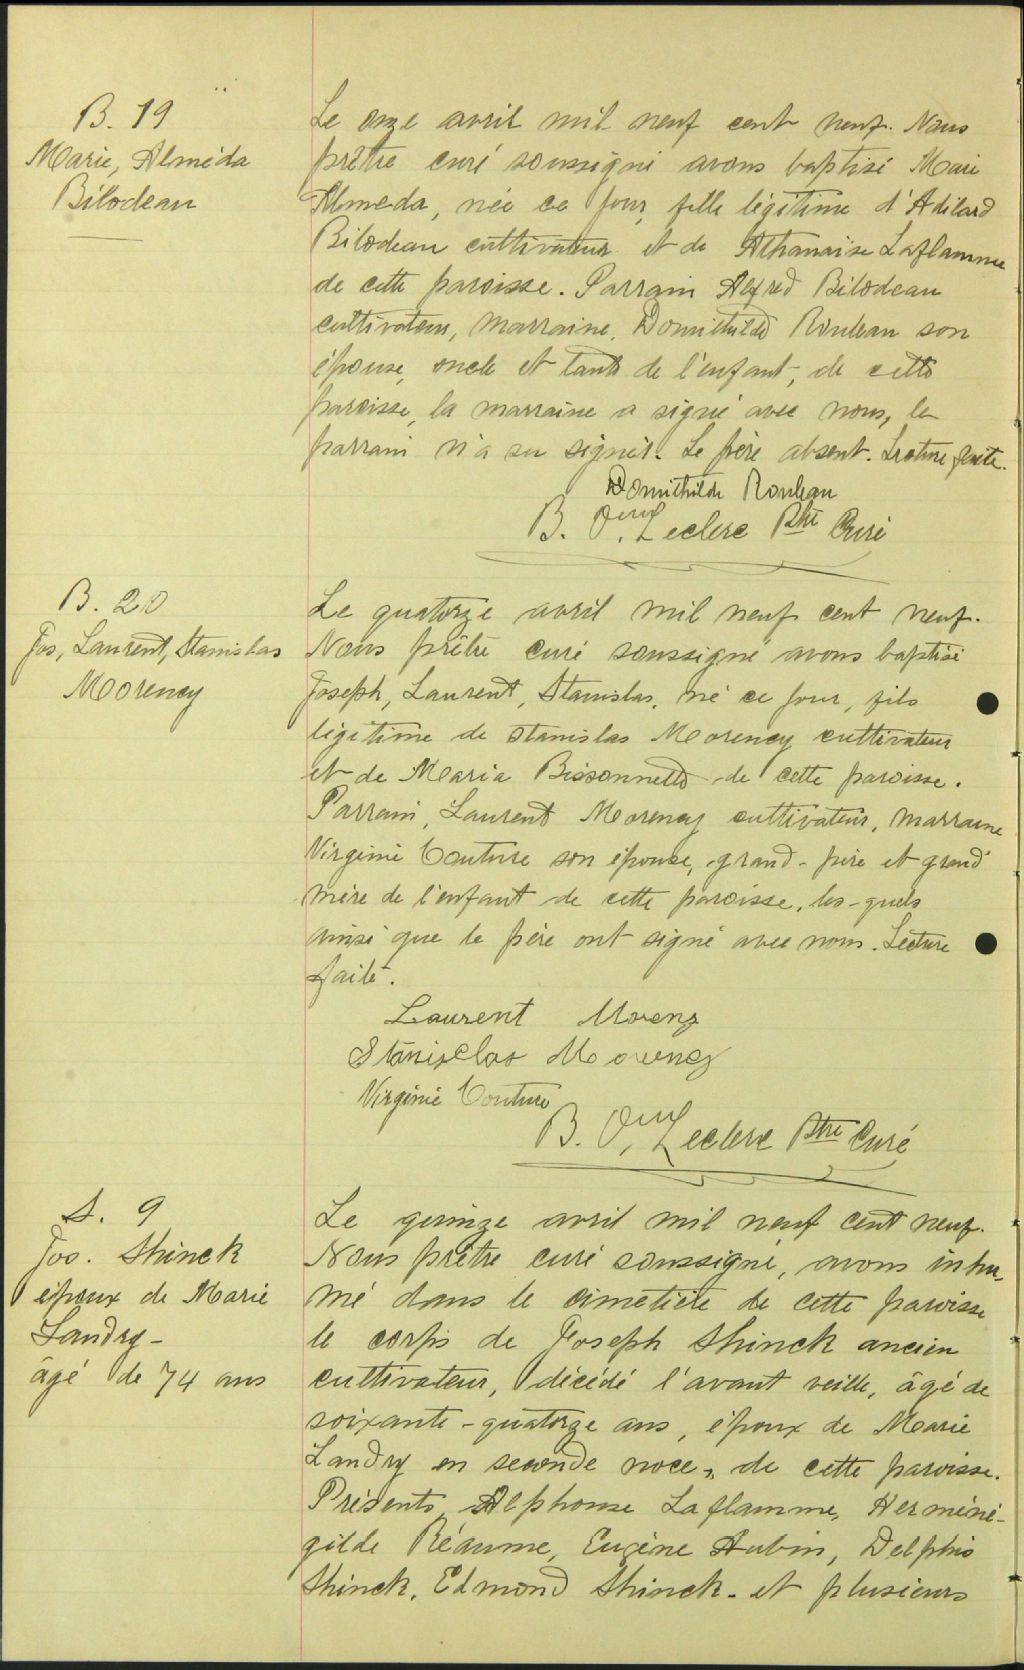 B. 19
Marie, Alméda
Bilodeau
Le onze avril mil neuf cent neuf. Nous
prêtre curé soussigné avons baptisé Marie
Almeda, née ce jour, fille légitime d'Adélard
Bilodeau cultivateur et de Athanaise Laflamme
de cette paroisse. Parrain Alfred Bilodeau
cultivateur, marraine, Domithilde Rouleau son
épouse, oncle et tante de l'enfant, de cette
paroisse, la marraine a signé avec nous, le
parrain n'a su signer. Le père absent. Lecture faite.
Domithilde Rouleau
B. O. Leclerc Ptre Curé
B. 20
Jos, Laurent, Stanislas
Morency
Le quatorze avril mil neuf cent neuf.
Nous prêtre curé soussigné avons baptisé
Joseph, Laurent, Stanislas, né ce jour, fils
légitime de Stanislas Morency cultivateur
et de Maria Bissonnette de cette paroisse.
Parrain, Laurent Morency cultivateur, marraine
Virginie Couture son épouse, grand-père et grand'
mère de l'enfant de cette paroisse, les-quels
ainsi que le père ont signé avec nous. Lecture
faite.
Laurent Morency
Stanisclas Morency
Virginie Couture
B. O. Leclerc Ptre Curé
S. 9
Jos. Shinck
époux de Marie
Landry -
âgé de 74 ans
Le quinze avril mil neuf cent neuf.
Nous prêtre curé soussigné, avons inhu-
mé dans le cimetière de cette paroisse
le corps de Joseph Shinck ancien
cultivateur, décédé l'avant veille, âgé de
soixante-quatorze ans, époux de Marie
Landry en seconde noce, de cette paroisse.
Présents, Alphonse Laflamme, Herméné-
gilde Réaume, Eugène Aubin, Delphis
Shinck, Edmond Shinck - et plusieurs